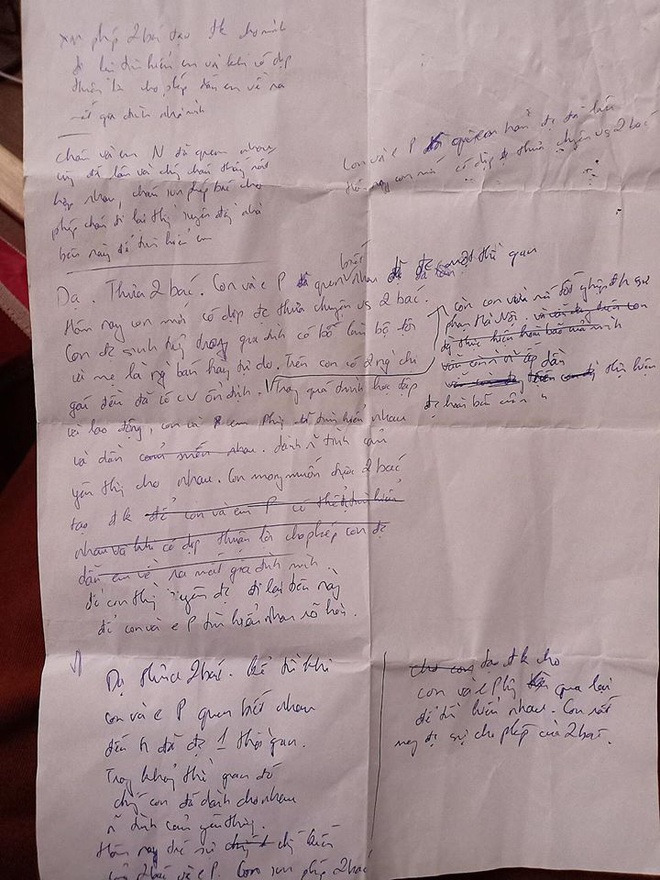 xin phép 2 bác tạo đk cho mình
đi lại tìm hiểu em và khi có dịp
thuận là cho phép dẫn em về ra
mắt gia đình nhà mình
Cháu và em N đã quen nhau
cũng đã lâu và chúng cháu thấy rất
hợp nhau, cháu xin phép bác cho
phép cháu đi lại thường xuyên đây nhà
bên này để tìm hiểu em
Con và e P quen nhau đc đã lâu
Hôm nay con mới có dịp đc thưa chuyện vs 2 bác
Dạ. Thưa 2 bác. Con và e P đã quen biết nhau đc một thời gian
Hôm nay con mới có dịp đc thưa chuyện vs 2 bác.
Con đc sinh ra trong gia đình có bố làm bộ đội
và mẹ là ng bán hàng tự do. Trên con có 2 ng chị
gái đều đã có cv ổn định. Trong quá trình học tập
và lao động, con và em Phg đã tìm hiểu nhau
và dần cảm mến nhau. dành n tình cảm
yêu thg cho nhau. Con mong muốn được 2 bác
tạo đk để con và em P có thể tìm hiểu
nhau và khi có dịp thuận lợi cho phép con đc
dẫn em về ra mắt gia đình mình.
để con thg xuyên đc đi lại bên này
để con và e P tìm hiểu nhau rõ hơn.
còn con vừa mới tốt nghiệp đh sư
phạm Hà Nội.
để thực hiện hoài bão của mình
thực hiện
đc hoài bão của
Dạ thưa 2 bác. Kể từ khi
con và e P quen biết nhau
đến n đã đc 1 thời gian.
Trong khoảng thời gian đó
chúng con đã dành cho nhau
n tình cảm yêu thg.
Hôm nay để sự chứng kiến
của 2 bác và e P. Con xin phép 2 bác
cho con tạo đk cho
con và e Phg qua lại
để tìm hiểu nhau. Con rất
mong đc sự cho phép của 2 bác.